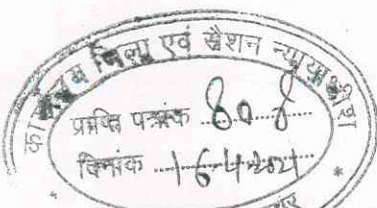 कार्यालय जिला एवं सैशन न्यायाधीश
प्राप्ति पत्रांक 808
दिनांक 16/4/2021